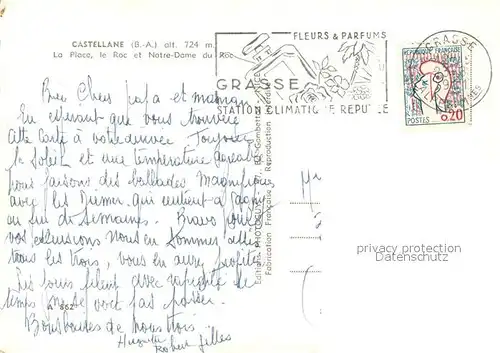 CASTELLANE (B.-A.) alt. 724 m.
La Place, le Roc et Notre-Dame du Roc
FLEURS & PARFUMS
GRASSE
STATION CLIMATIQUE REPUTEE
GRASSE
REPUBLIQUE FRANÇAISE
POSTES 0,20
Bien Chers papa et maman
En espérant que vous trouverez
cette carte à votre arrivée Toujours
le soleil et une température agréable
nous faisons des ballades magnifiques
avec les qui
en fin de semaines. Bravo pour
vos excursions nous en sommes
tous les trois, vous en aurez profité
Les jours filent avec rapidité le
temps ne se voit pas passer.
Bons baisers de nous trois
Huguette
Robert Gilles
862
Fabrication Française Reproduction
privacy protection
Datenschutz